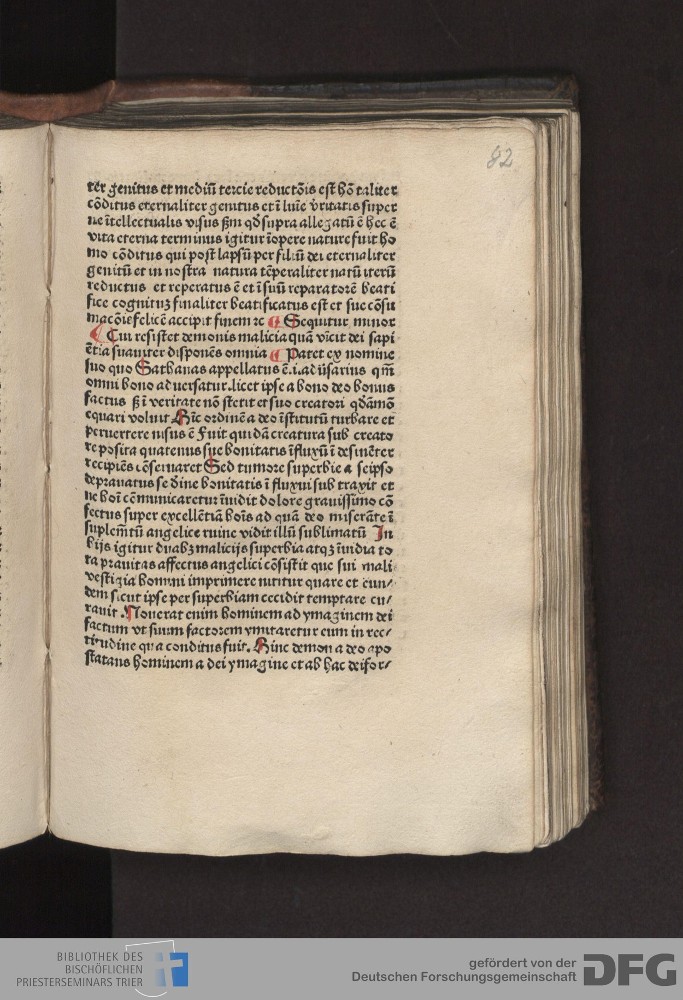 82
ter genitus et mediū tercie reductōis est hō taliter
cōditus eternaliter genitus et ī luīe v̄ritatis super
ne ītellectualis visus s̄m qd supra allegatū ē hec ē
vita eterna terminus igitur īopere nature fuit ho
mo cōditus qui post lapsū per filiū dei eternaliter
genitū et in nostra natura tēperaliter natū iterū
reductus et reperatus ē et ī suū reparatorē beati
fice cognituꝫ finaliter beatificatus est et sue cōsū
macōīs felicē accipit finem ꝛc ¶ Sequitur minor
¶ Cui resistet demonis malicia quā vīcit dei sapi
ētia suauiter disponēs omnia ¶ Patet ex nomine
suo quo Sathanas appellatus ē .i. aduersarius qm̄
omni bono aduersatur .licet ipse a bono deo bonus
factus sꝫ ī veritate nō stetit et suo creatori qdāmō
equari voluit Hīc ordinē a deo īstitutū turbare et
peruertere nisus ē Fuit quidā creatura sub creato
re posita quatenus sue bonitatis īfluxū ī desinēter
recipiēs cōseruaret Sed tumore superbie a seipso
deprauatus se dīne bonitatis ī fluxui sub traxit et
ne boī cōmunicaretur īuidit dolore grauissimo cō
fectus super excellētiā boīs ad quā deo miserāte ī
suplem̄tū angelice ruine vidit illū sublimatū In
hijs igitur duabꝫ malicijs superbia atqꝫ īuidia to
ta prauitas affectus angelici cōsistit que sui mali
vestigia homini imprimere nititur quare et eun/
dem sicut ipse per superbiam cecidit temptare cu/
rauit .Nouerat enim hominem ad ymaginem dei
factum vt suum factorem ymitaretur eum in rec/
titudine qua conditus fuit. Hinc demon a deo apo
statans hominem a dei ymagine et ab hac deifor/
BIBLIOTHEK DES
BISCHÖFLICHEN
PRIESTERSEMINARS TRIER
gefördert von der
Deutschen Forschungsgemeinschaft
DFG